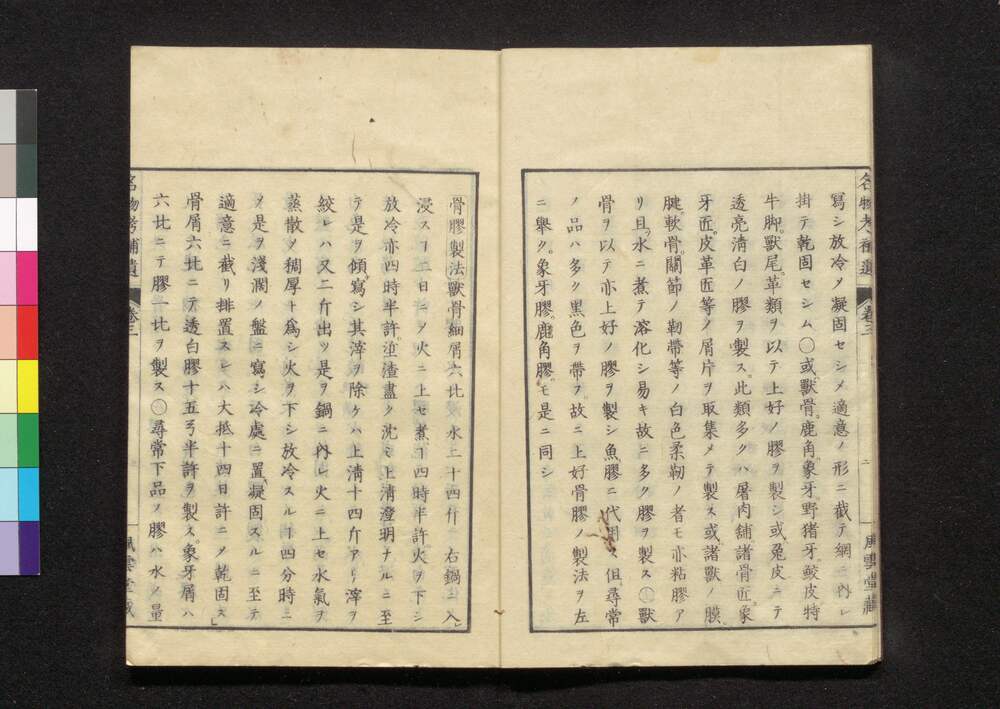 寫シ放冷メ凝固セシメ適意ノ形ニ截テ網ニ内レ
掛テ乾固セシム〇或獸骨。鹿角。象牙。野猪牙。鮫皮特
牛脚。獸尾。革類ヲ以テ上好ノ膠ヲ製シ或兔皮ニテ
透亮清白ノ膠ヲ製ス。此類多クハ屠肉舗諸骨匠。象
牙匠。皮革匠等ノ屑片ヲ取集メテ製ス或諸獸ノ膜。
腱。軟骨。關節ノ勒帶等ノ白色柔靭ノ者モ亦粘膠ア
リ且ツ水ニ煮テ溶化シ易キ故ニ多ク膠ヲ製ス〇獸
骨ヲ以テ亦上好ノ膠ヲ製シ魚膠ニ代用ス但。尋常
ノ品ハ多ク黒色ヲ帶フ。故ニ上好骨膠ノ製法ヲ左
ニ擧ク。象牙膠。鹿角膠。モ是ニ同シ
骨膠製法 獸骨細屑六比 水二十四斤 右鍋ニ入
浸スヿ二日ニメ火ニ上セ煮ヿ四時半許火ヲ下シ
放冷亦四時半許渣盡ク沈ミ上清澄明ナルニ至
テ是ヲ傾寫シ其滓ヲ除ケハ上清十四斤アリ滓ヲ
絞レハ又二斤出ツ是ヲ鍋ニ内レ火ニ上セ水氣ヲ
蒸散メ稠厚ト爲シ火ヲ下シ放冷スルヿ四分時ニ
メ是ヲ淺濶ノ盤ニ寫シ冷處ニ置。凝固スルニ至テ
適意ニ截リ排置スレハ大抵十四日許ニメ乾固ス
骨屑六比ニテ透白膠十五弓半許ヲ製ス。象牙屑ハ
六比ニテ膠一比ヲ製ス〇尋常下品ノ膠ハ水ノ量
名物考補遺
卷三
二
風雲堂藏